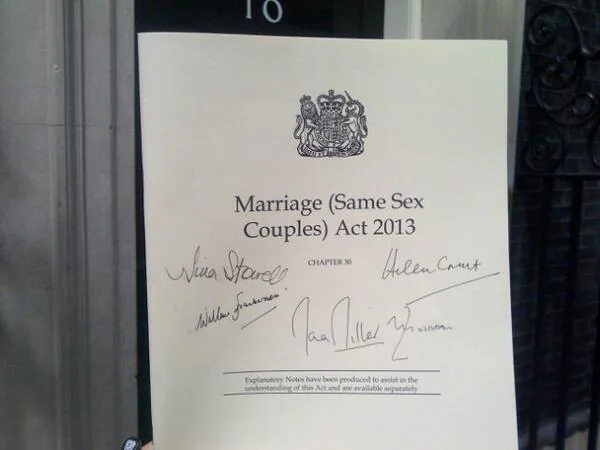 10
Marriage (Same Sex
Couples) Act 2013
CHAPTER 30
Helen Grant
Tina Stowell
Maria Miller
Explanatory Notes have been produced to assist in the
understanding of this Act and are available separately